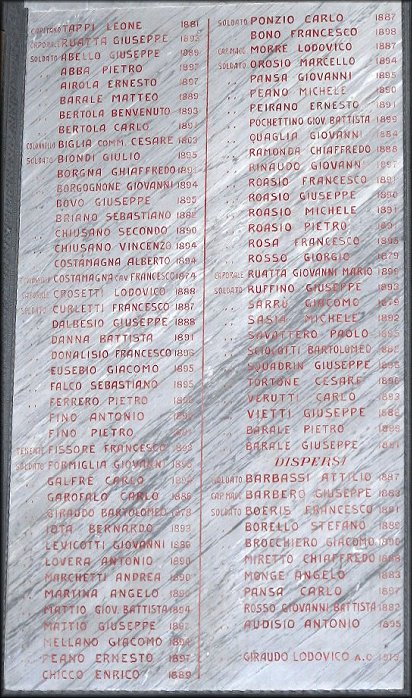 CAPITANO TAPPI LEONE 1881
CAPORALE RUATTA GIUSEPPE 1895
SOLDATO ABELLO GIUSEPPE 1889
" ABBÀ PIETRO 1897
" AIROLA ERNESTO 1897
" BARALE MATTEO 1889
" BERTOLA BENVENUTO 1893
" BERTOLA CARLO
COLONNELLO BIGLIA COMM. CESARE
SOLDATO BIONDI GIULIO 1895
" BORGNA GHIAFFREDO
" BORGOGNONE GIOVANNI 1894
" BOVO GIUSEPPE 1895
" BRIANO SEBASTIANO 1882
" CHIUSANO SECONDO 1890
" CHIUSANO VINCENZO 1894
" COSTAMAGNA ALBERTO 1894
COSTAMAGNA CAV. FRANCESCO 1874
CAPORALE CROSETTI LODOVICO 1888
SOLDATO CURLETTI FRANCESCO 1887
" DALBESIO GIUSEPPE 1888
" DANNA BATTISTA 1891
" DONALISIO FRANCESCO 1896
" EUSEBIO GIACOMO 1895
" FALCO SEBASTIANO 1895
" FERRERO PIETRO
" FINO ANTONIO
" FINO PIETRO
TENENTE FISSORE FRANCESCO
SOLDATO FORMIGLIA GIOVANNI
" GALFRÈ CARLO
" GAROFALO CARLO 1886
" GIRAUDO BARTOLOMEO 1878
" IOTA BERNARDO 1893
" LEVICOTTI GIOVANNI
" LOVERA ANTONIO
" MARCHETTI ANDREA
" MARTINA ANGELO
" MATTIO GIOV. BATTISTA 1894
" MATTIO GIUSEPPE
" MELLANO GIACOMO
" PEANO ERNESTO 1897
" CHICCO ENRICO 1889
SOLDATO PONZIO CARLO 1887
" BONO FRANCESCO 1898
CAP. MAGG. MOBRÈ LODOVICO 1887
SOLDATO OROSIO MARCELLO 1894
" PANSA GIOVANNI 1895
" PEANO MICHELE 1890
" PEIRANO ERNESTO 1891
" POCHETTINO GIOV. BATTISTA 1889
" QUAGLIA GIOVANNI 1884
" RAMONDA CHIAFFREDO 1888
" RINAUDO GIOVANNI 1897
" ROASIO FRANCESCO 1891
" ROASIO GIUSEPPE 1890
" ROASIO MICHELE 1891
" ROASIO PIETRO
" ROSA FRANCESCO
" ROSSO GIORGIO 1879
CAPORALE RUATTA GIOVANNI MARIO 1899
SOLDATO RUFFINO GIUSEPPE 1893
" SARRÙ GIACOMO 1879
" SASIA MICHELE 1892
" SAVATTERO PAOLO
" SCIOLOTTI BARTOLOMEO 1887
" SQUADRIN GIUSEPPE
" TORTONE CESARE
" VERUTTI CARLO 1893
" VIETTI GIUSEPPE
" BARALE PIETRO
" BARALE GIUSEPPE
DISPERSI
SOLDATO BARBASSI ATTILIO 1887
CAP. MAGG. BARBERO GIUSEPPE 1883
SOLDATO BOERIS FRANCESCO 1891
" BORELLO STEFANO
" BROCCHIERO GIACOMO
" MIRETTO CHIAFFREDO
" MONGE ANGELO 1883
" PANSA CARLO 1897
" ROSSO GIOVANNI BATTISTA 1882
" AUDISIO ANTONIO 1895
GIRAUDO LODOVICO A.O.